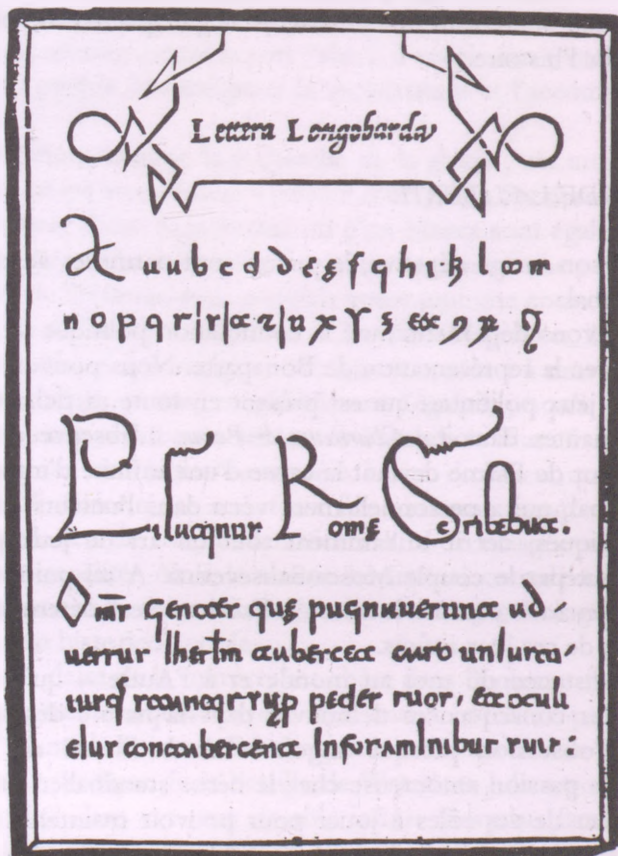 Lettera Longobarda
A a a b c d d e ę f g h i k l m
n o p q r
Palatinus Rome Scribebat.
Om̄s Gentes quę pugnauerunt ad
uersus Iherl̄m tabescet caro uniuscu
iusq stantis sup pedes suos et oculi
eius contabescent In foraminibus suis: